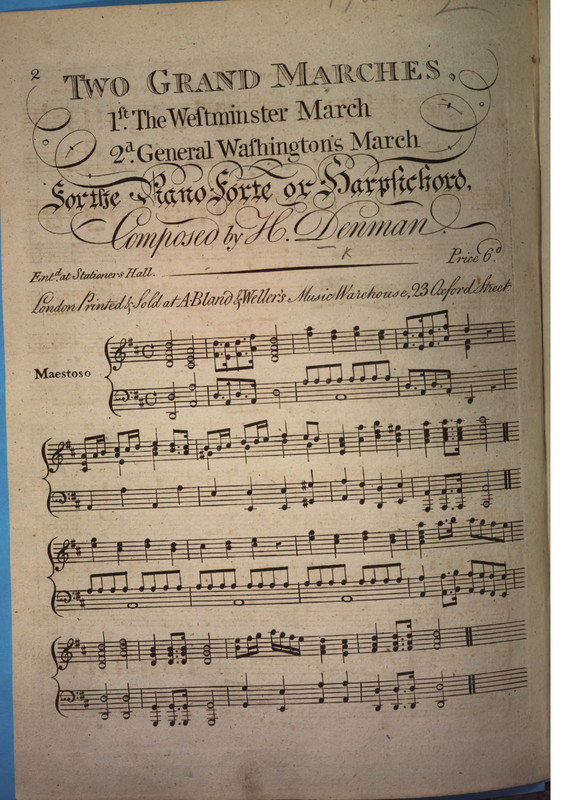 2
TWO GRAND MARCHES,
1ſt. The Weſtminster March
2d. General Waſhington's March
For the Piano Forte or Harpſichord,
Composed by H. Denman.
K
Entd. at Stationers Hall.
Price 6d.
London Printed & Sold at A. Bland & Weller's Music Warehouse, 23 Oxford Street.
Maestoso